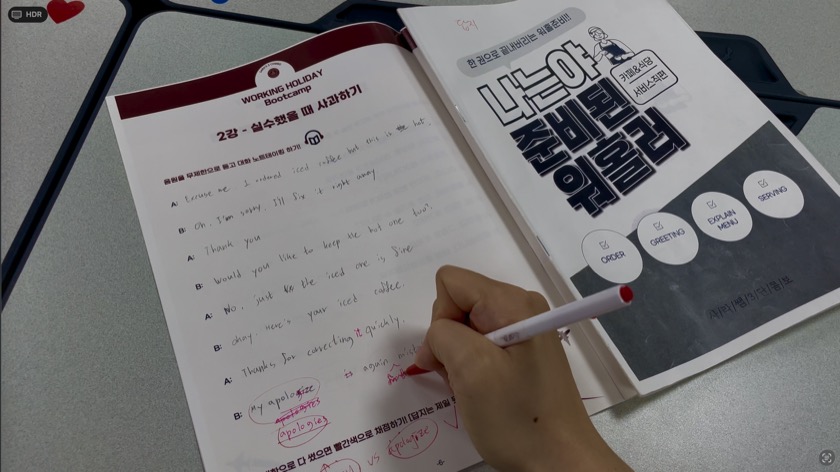 HDR
WORKING HOLIDAY
Bootcamp
2강 - 실수했을 때 사과하기
음원을 무제한으로 듣고 대화 노트테이킹 하기!
A: Excuse me. I ordered iced coffee but this is hot.
B: Oh, I'm sorry. I'll fix it right away
A: Thank you
B: Would you like to keep the hot one too?
A: No, just the iced one is fine
B: okay. Here's your iced coffee.
A: Thanks for correcting it quickly.
B: My apologize is again
apologies
apologies
빨간색으로 채점하기!
vs apologize
-6-
답지
한 권으로 끝내버리는 워홀준비!!
나는야
준비된
워홀러
카페&식당
서비스직편
ORDER
GREETING
EXPLAIN
MENU
SERVING